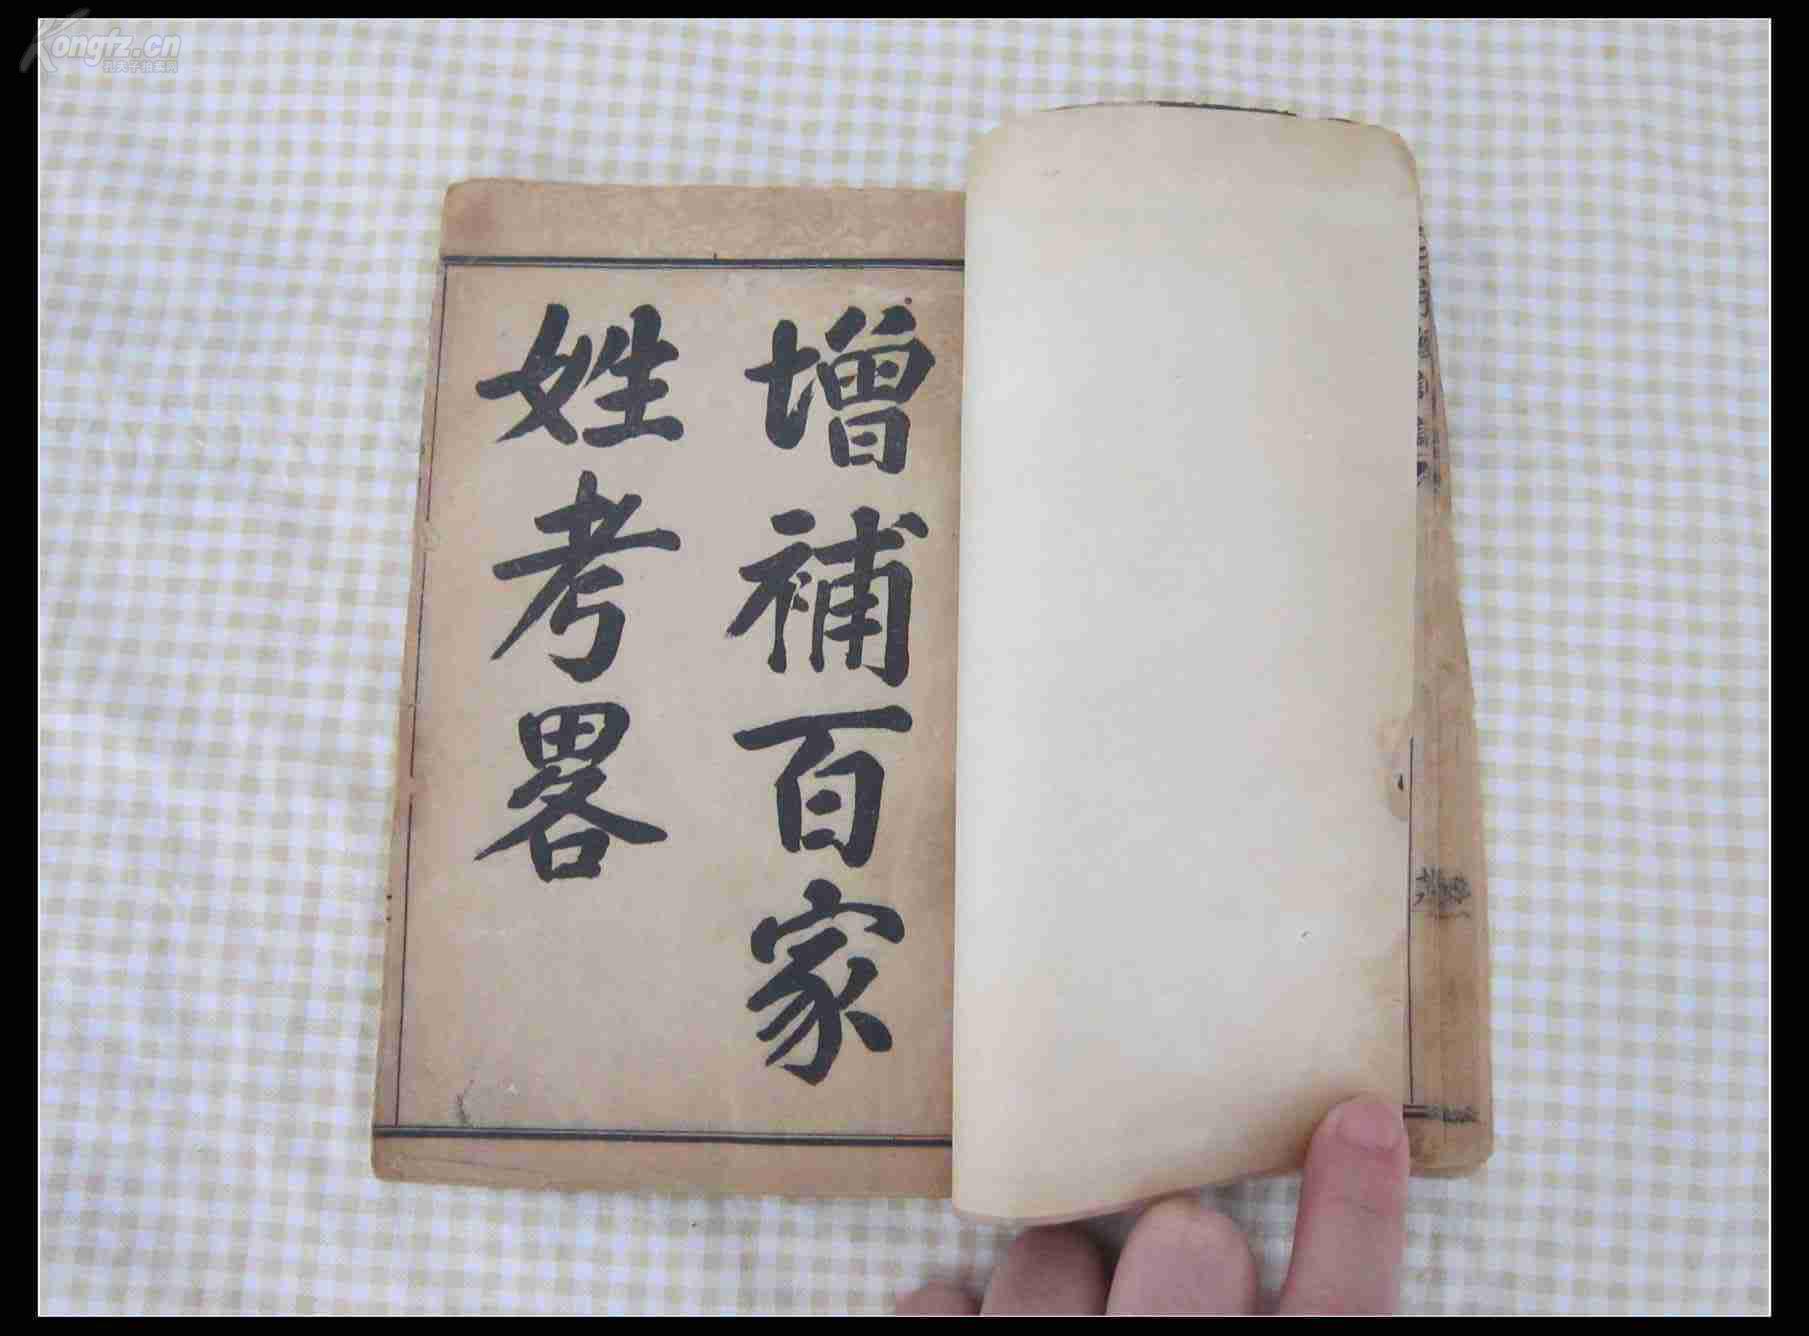 增補百家
姓考畧
Kongfz.cn
孔夫子拍卖网